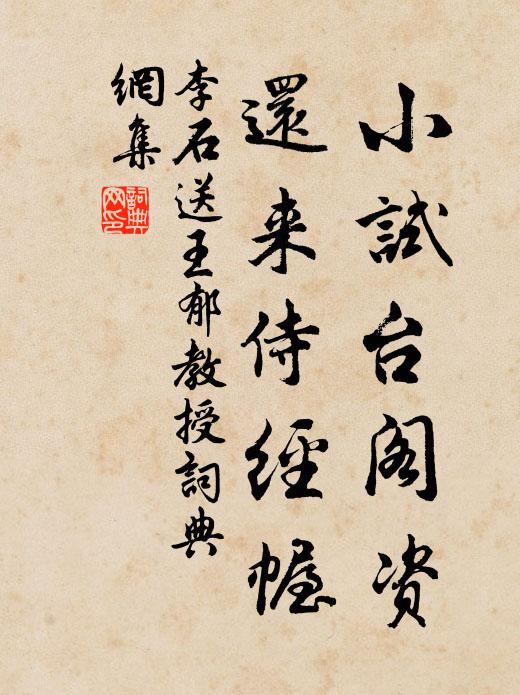 小試台阁资
還来侍經幄
李石送王郁教授詞典
網集
詞典网印